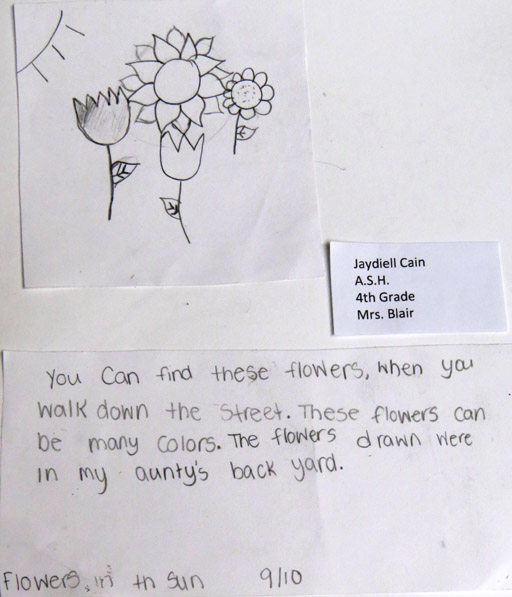 Jaydiell Cain
A.S.H.
4th Grade
Mrs. Blair
You Can find these flowers, when you
walk down the street. These flowers can
be many colors. The flowers drawn were
in my aunty's back yard.
Flowers, in th Sun 9/10